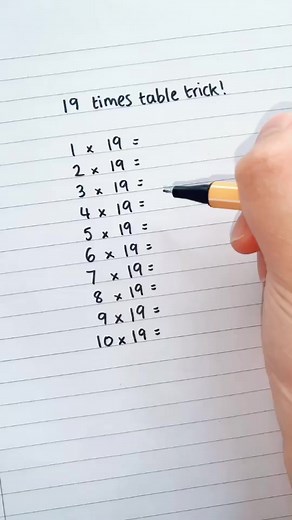 19 times table trick!
1 × 19 =
2 × 19 =
3 × 19 =
4 × 19 =
5 × 19 =
6 × 19 =
7 × 19 =
8 × 19 =
9 × 19 =
10 × 19 =